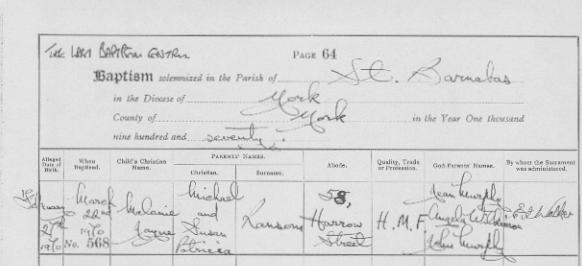 THE LAST BAPTISM ENTRY
PAGE 64
Baptism solemnized in the Parish of St. Barnabas
in the Diocese of York
County of York in the Year One thousand
nine hundred and seventy.
Alleged Date of Birth. When Baptised. Child's Christian Name. PARENTS' NAMES. Christian. Surname. Abode. Quality, Trade or Profession. God-Parents' Names. By whom the Sacrament was administered.
February
1970
March 22nd 1970
No. 568
Melanie Jayne
Michael and Susan Patricia
Ransom
Harrow Street
H.M.F.
Jean Murphy
Angela
John Murphy
Walker